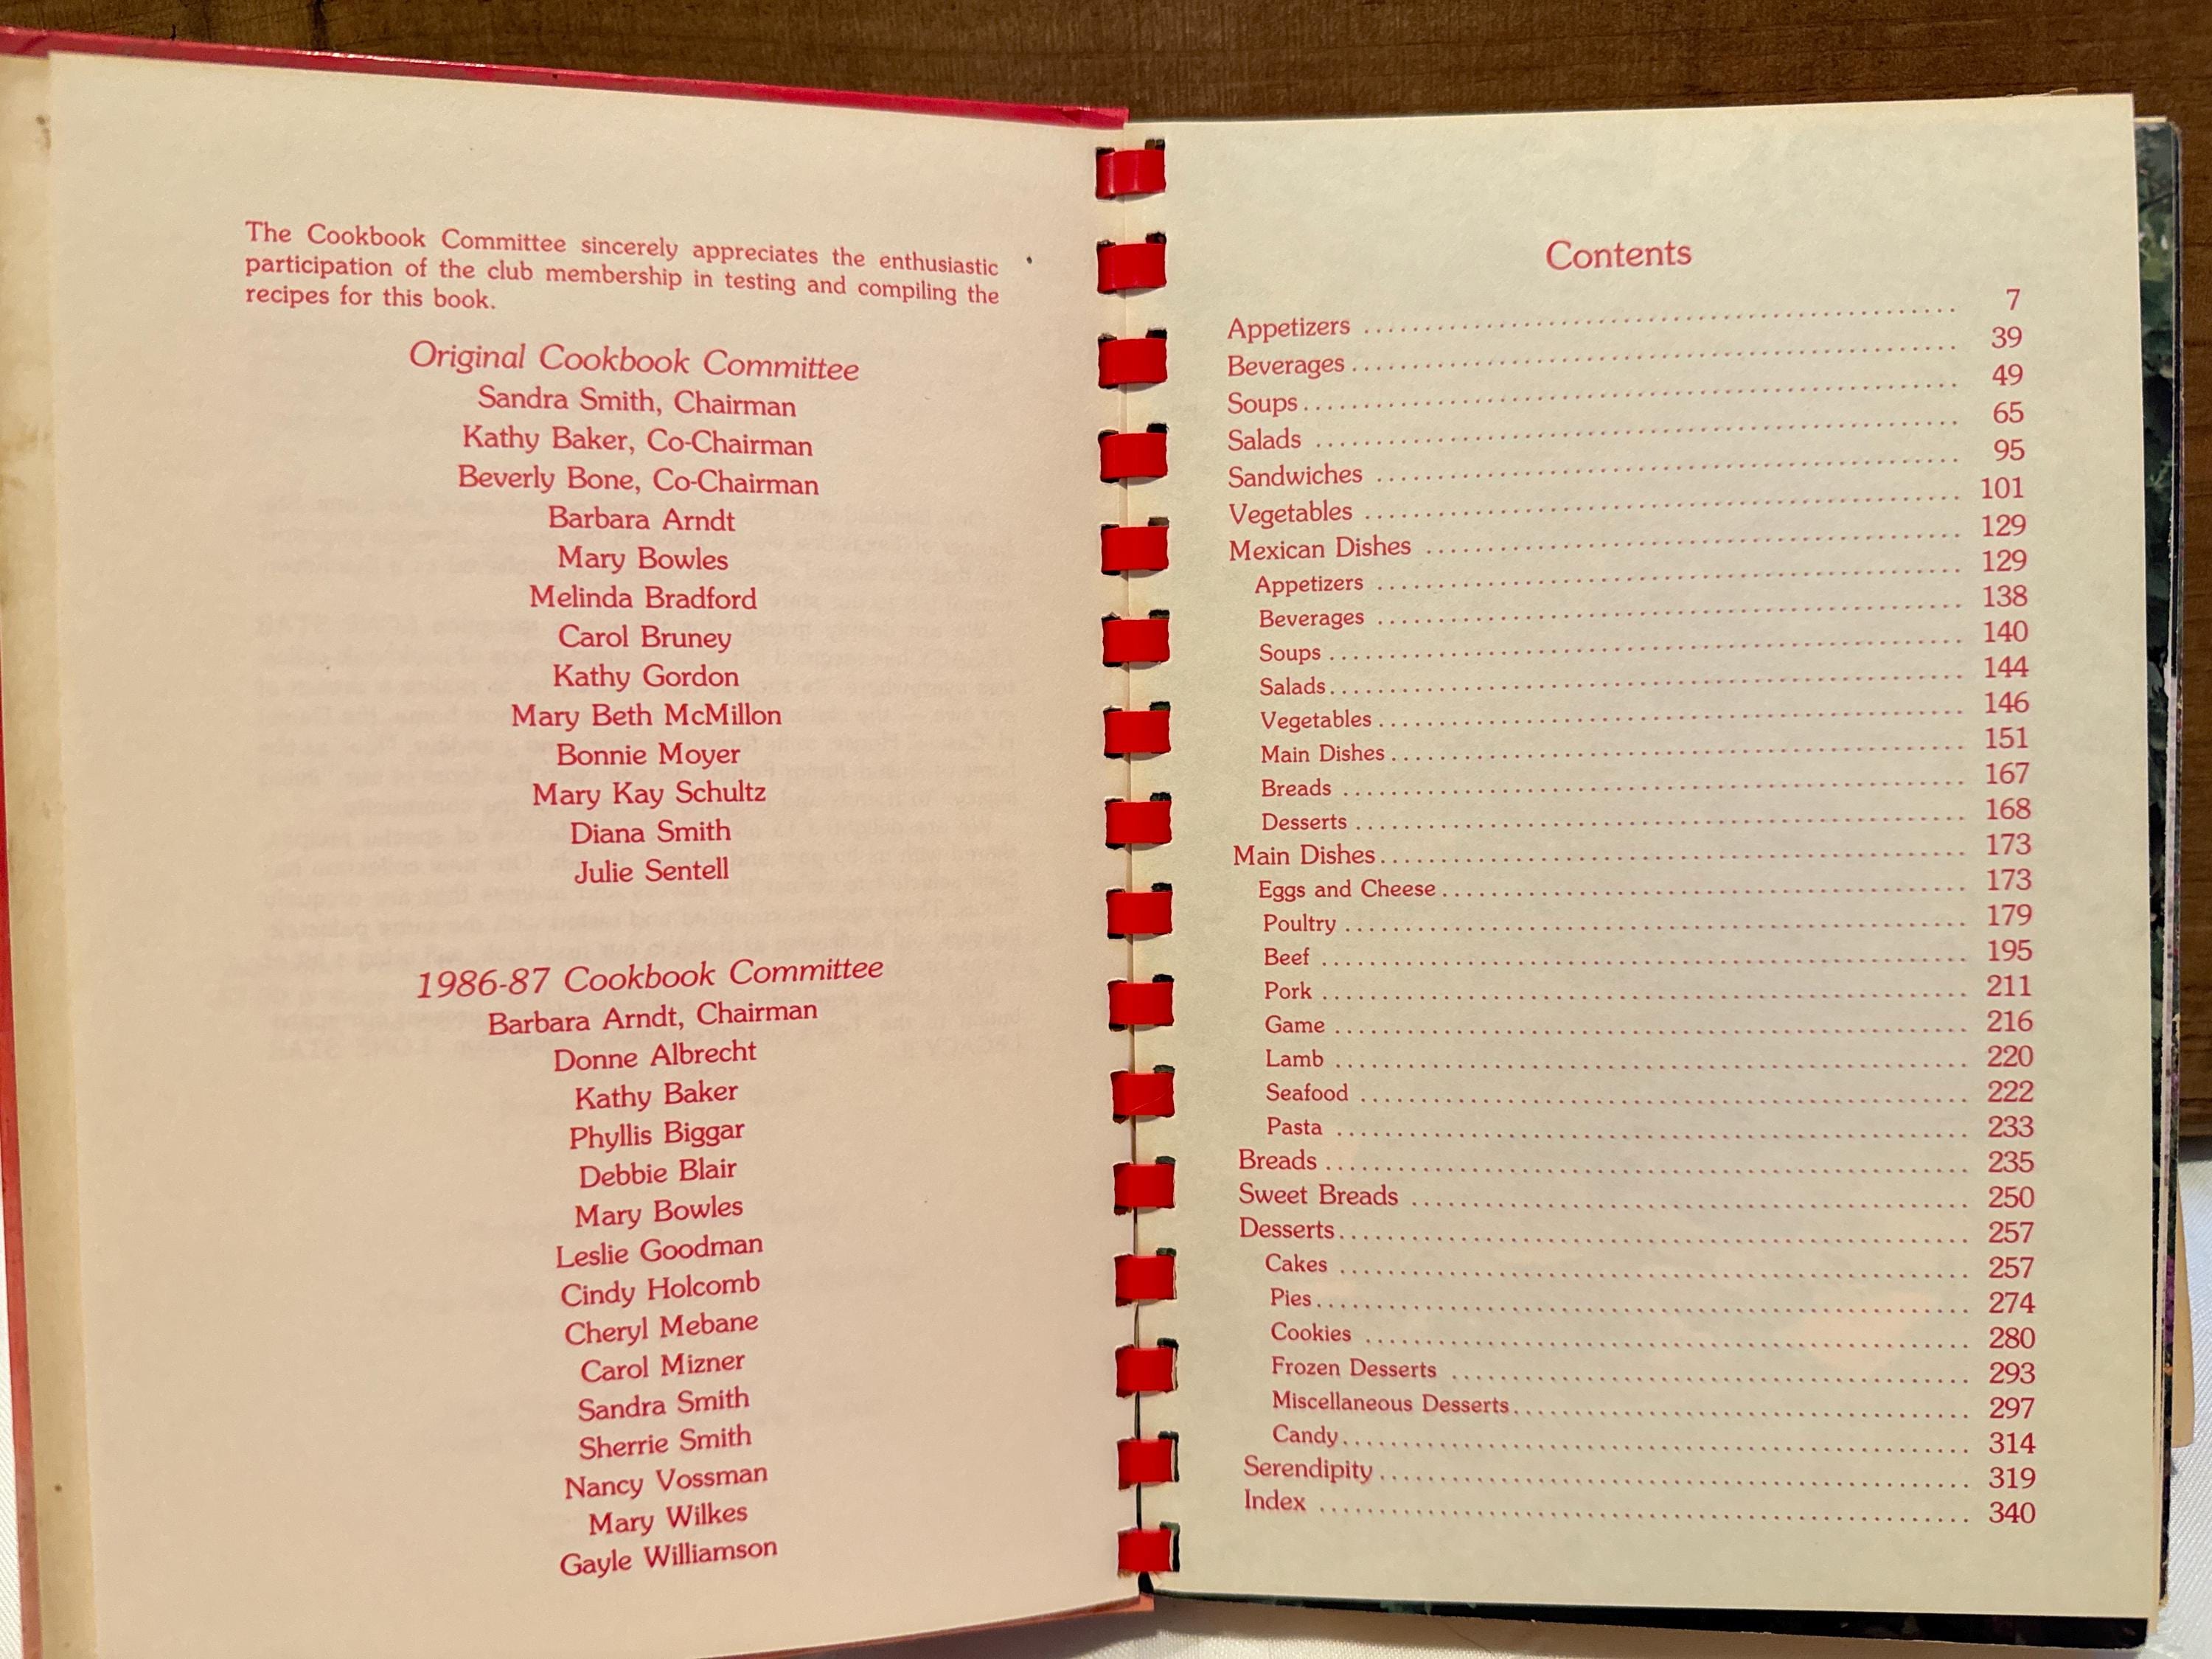 The Cookbook Committee sincerely appreciates the enthusiastic
participation of the club membership in testing and compiling the
recipes for this book.
Original Cookbook Committee
Sandra Smith, Chairman
Kathy Baker, Co-Chairman
Beverly Bone, Co-Chairman
Barbara Arndt
Mary Bowles
Melinda Bradford
Carol Bruney
Kathy Gordon
Mary Beth McMillon
Bonnie Moyer
Mary Kay Schultz
Diana Smith
Julie Sentell
1986-87 Cookbook Committee
Barbara Arndt, Chairman
Donne Albrecht
Kathy Baker
Phyllis Biggar
Debbie Blair
Mary Bowles
Leslie Goodman
Cindy Holcomb
Cheryl Mebane
Carol Mizner
Sandra Smith
Sherrie Smith
Nancy Vossman
Mary Wilkes
Gayle Williamson
Contents
Appetizers 7
Beverages 39
Soups 49
Salads 65
Sandwiches 95
Vegetables 101
Mexican Dishes 129
Appetizers 129
Beverages 138
Soups 140
Salads 144
Vegetables 146
Main Dishes 151
Breads 167
Desserts 168
Main Dishes 173
Eggs and Cheese 173
Poultry 179
Beef 195
Pork 211
Game 216
Lamb 220
Seafood 222
Pasta 233
Breads 235
Sweet Breads 250
Desserts 257
Cakes 257
Pies 274
Cookies 280
Frozen Desserts 293
Miscellaneous Desserts 297
Candy 314
Serendipity 319
Index 340